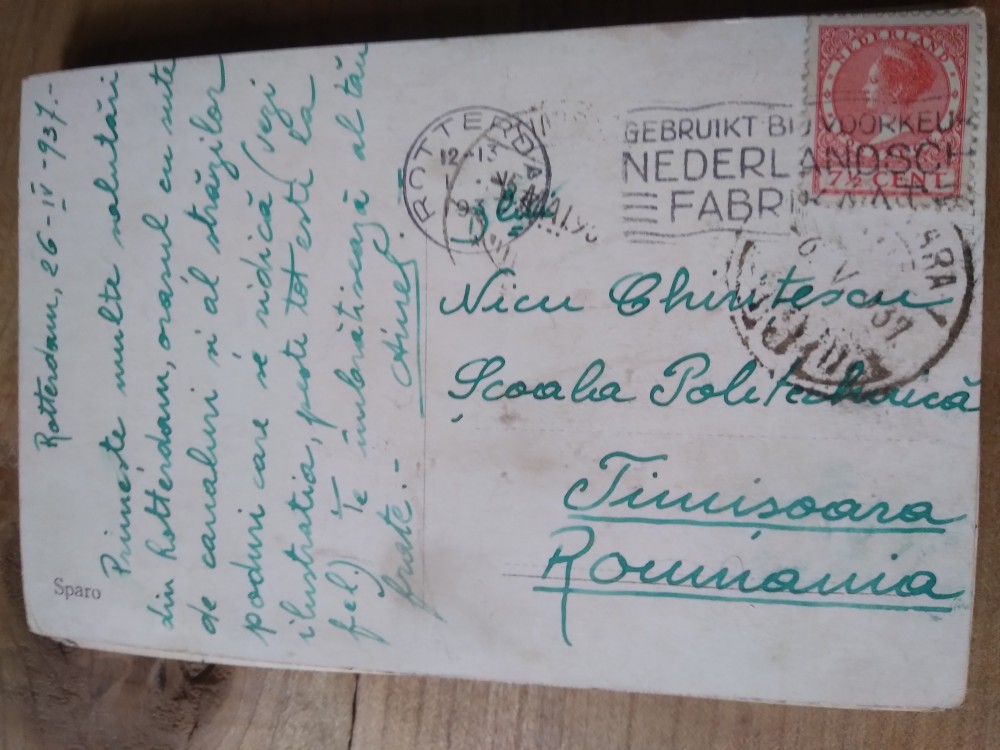 Rotterdam, 26-IV-937.-
Primește multe salutări
din Rotterdam, orașul cu sute
de canaluri și al străzilor
poduri care se ridică (vezi
ilustrația, peste tot este la
fel.) Te îmbrățișează al tău
frate.-
Sparo
ROTTERDAM
12-13
GEBRUIKT BIJ VOORKEUR
NEDERLANDSCH
FABRIKAAT
NEDERLAND
7½ CENT
Nicu Chiritescu
Școala Politehnică
Timișoara
România